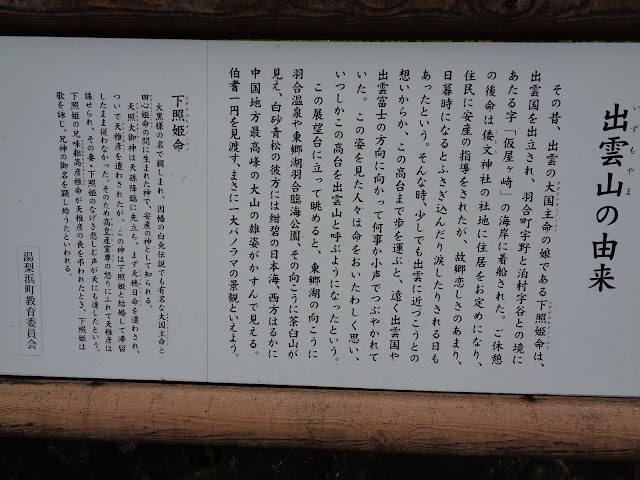 出雲山の由来
いずもやま
その昔、出雲の大国主命の娘である下照姫命は、
出雲国を出立され、羽合町宇野と泊村宇谷との境に
あたる字「仮屋ヶ崎」の海岸に着船された。ご休憩
の後命は倭文神社の社地に住居をお定めになり、
住民に安産の指導をされたが、故郷恋しさのあまり、
日暮時になるとふさぎ込んだり涙したりされる日も
あったという。そんな時、少しでも出雲に近づこうとの
想いからか、この高台まで歩を運ぶと、遠く出雲国や
出雲富士の方向に向かって何事か小声でつぶやかれて
いた。この姿を見た人々は命をおいたわしく思い、
いつしかこの高台を出雲山と呼ぶようになったという。
この展望台に立って眺めると、東郷湖の向こうに
羽合温泉や東郷湖羽合臨海公園、その向こうに茶臼山が
見え、白砂青松の彼方には紺碧の日本海、西方はるかに
中国地方最高峰の大山の雄姿がかすんで見える。
伯耆一円を見渡す、まさに一大パノラマの景観といえよう。
下照姫命
大黒様の名で親しまれ、因幡の白兎伝説でも有名な大国主命と
田心姫命の間に生まれた神で、安産の神として知られる。
天照大御神は天孫降臨に先立ち、まず天穂日命を遣わされ、
ついで天稚彦を遣わされたが、この神は下照姫と結婚して滞留
したまま従わなかった。そのため高皇産霊尊の怒りにふれて天稚彦は
誅せられ、その妻・下照姫のなげき悲しむ声が天にも達したという。
下照姫の兄味耜高彦根命が天稚彦の喪を弔われたとき、下照姫は
歌を詠じ、兄神の御名を顕し給うたといわれる。
湯梨浜町教育委員会